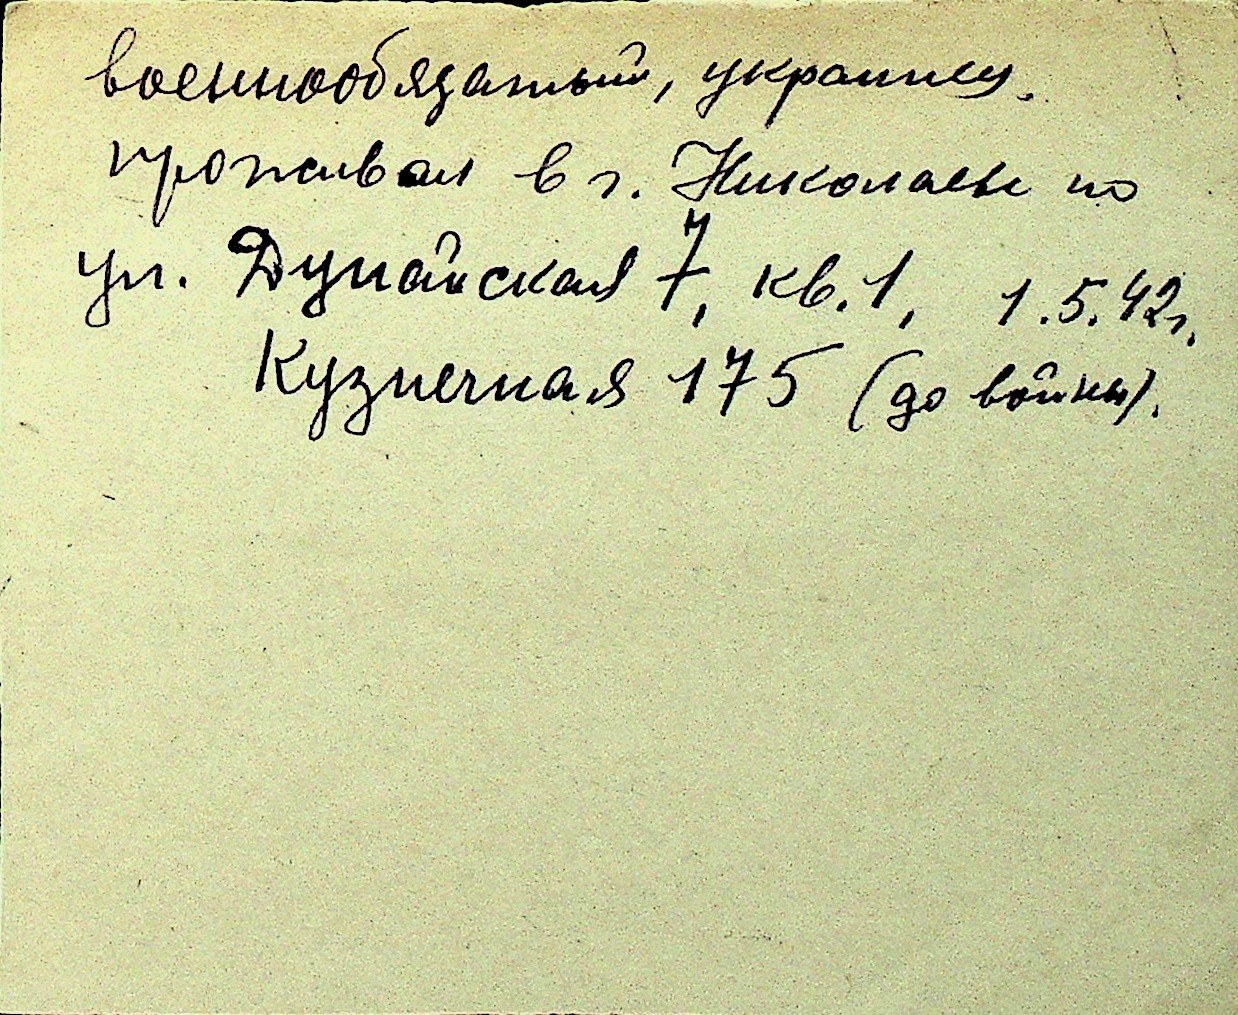 военнообязанный, украинец.
проживал в г. Николаеве по
ул. Дунайская 7, кв. 1, 1.5.42г.
Кузнечная 175 (до войны).